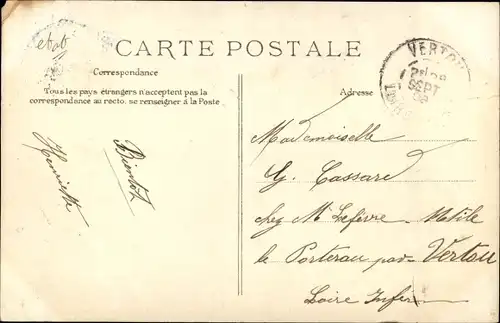 CARTE POSTALE
Correspondance
Tous les pays étrangers n'acceptent pas la
correspondance au recto. se renseigner à la Poste
Adresse
VERTOU
SEPT
Bientôt
Henriette
Mademoiselle
G. Cassard
chez Mr Lefèvre
le Portereau par Vertou
Loire Infer